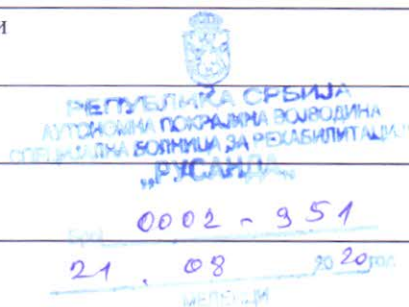 и
РЕПУБЛИКА СРБИЈА
АУТОНОМНА ПОКРАЈИНА ВОЈВОДИНА
СПЕЦИЈАЛНА БОЛНИЦА ЗА РЕХАБИЛИТАЦИЈУ
„РУСАНДА„
Број 0002 - 951
21. 08 2020 год.
МЕЛЕНЦИ